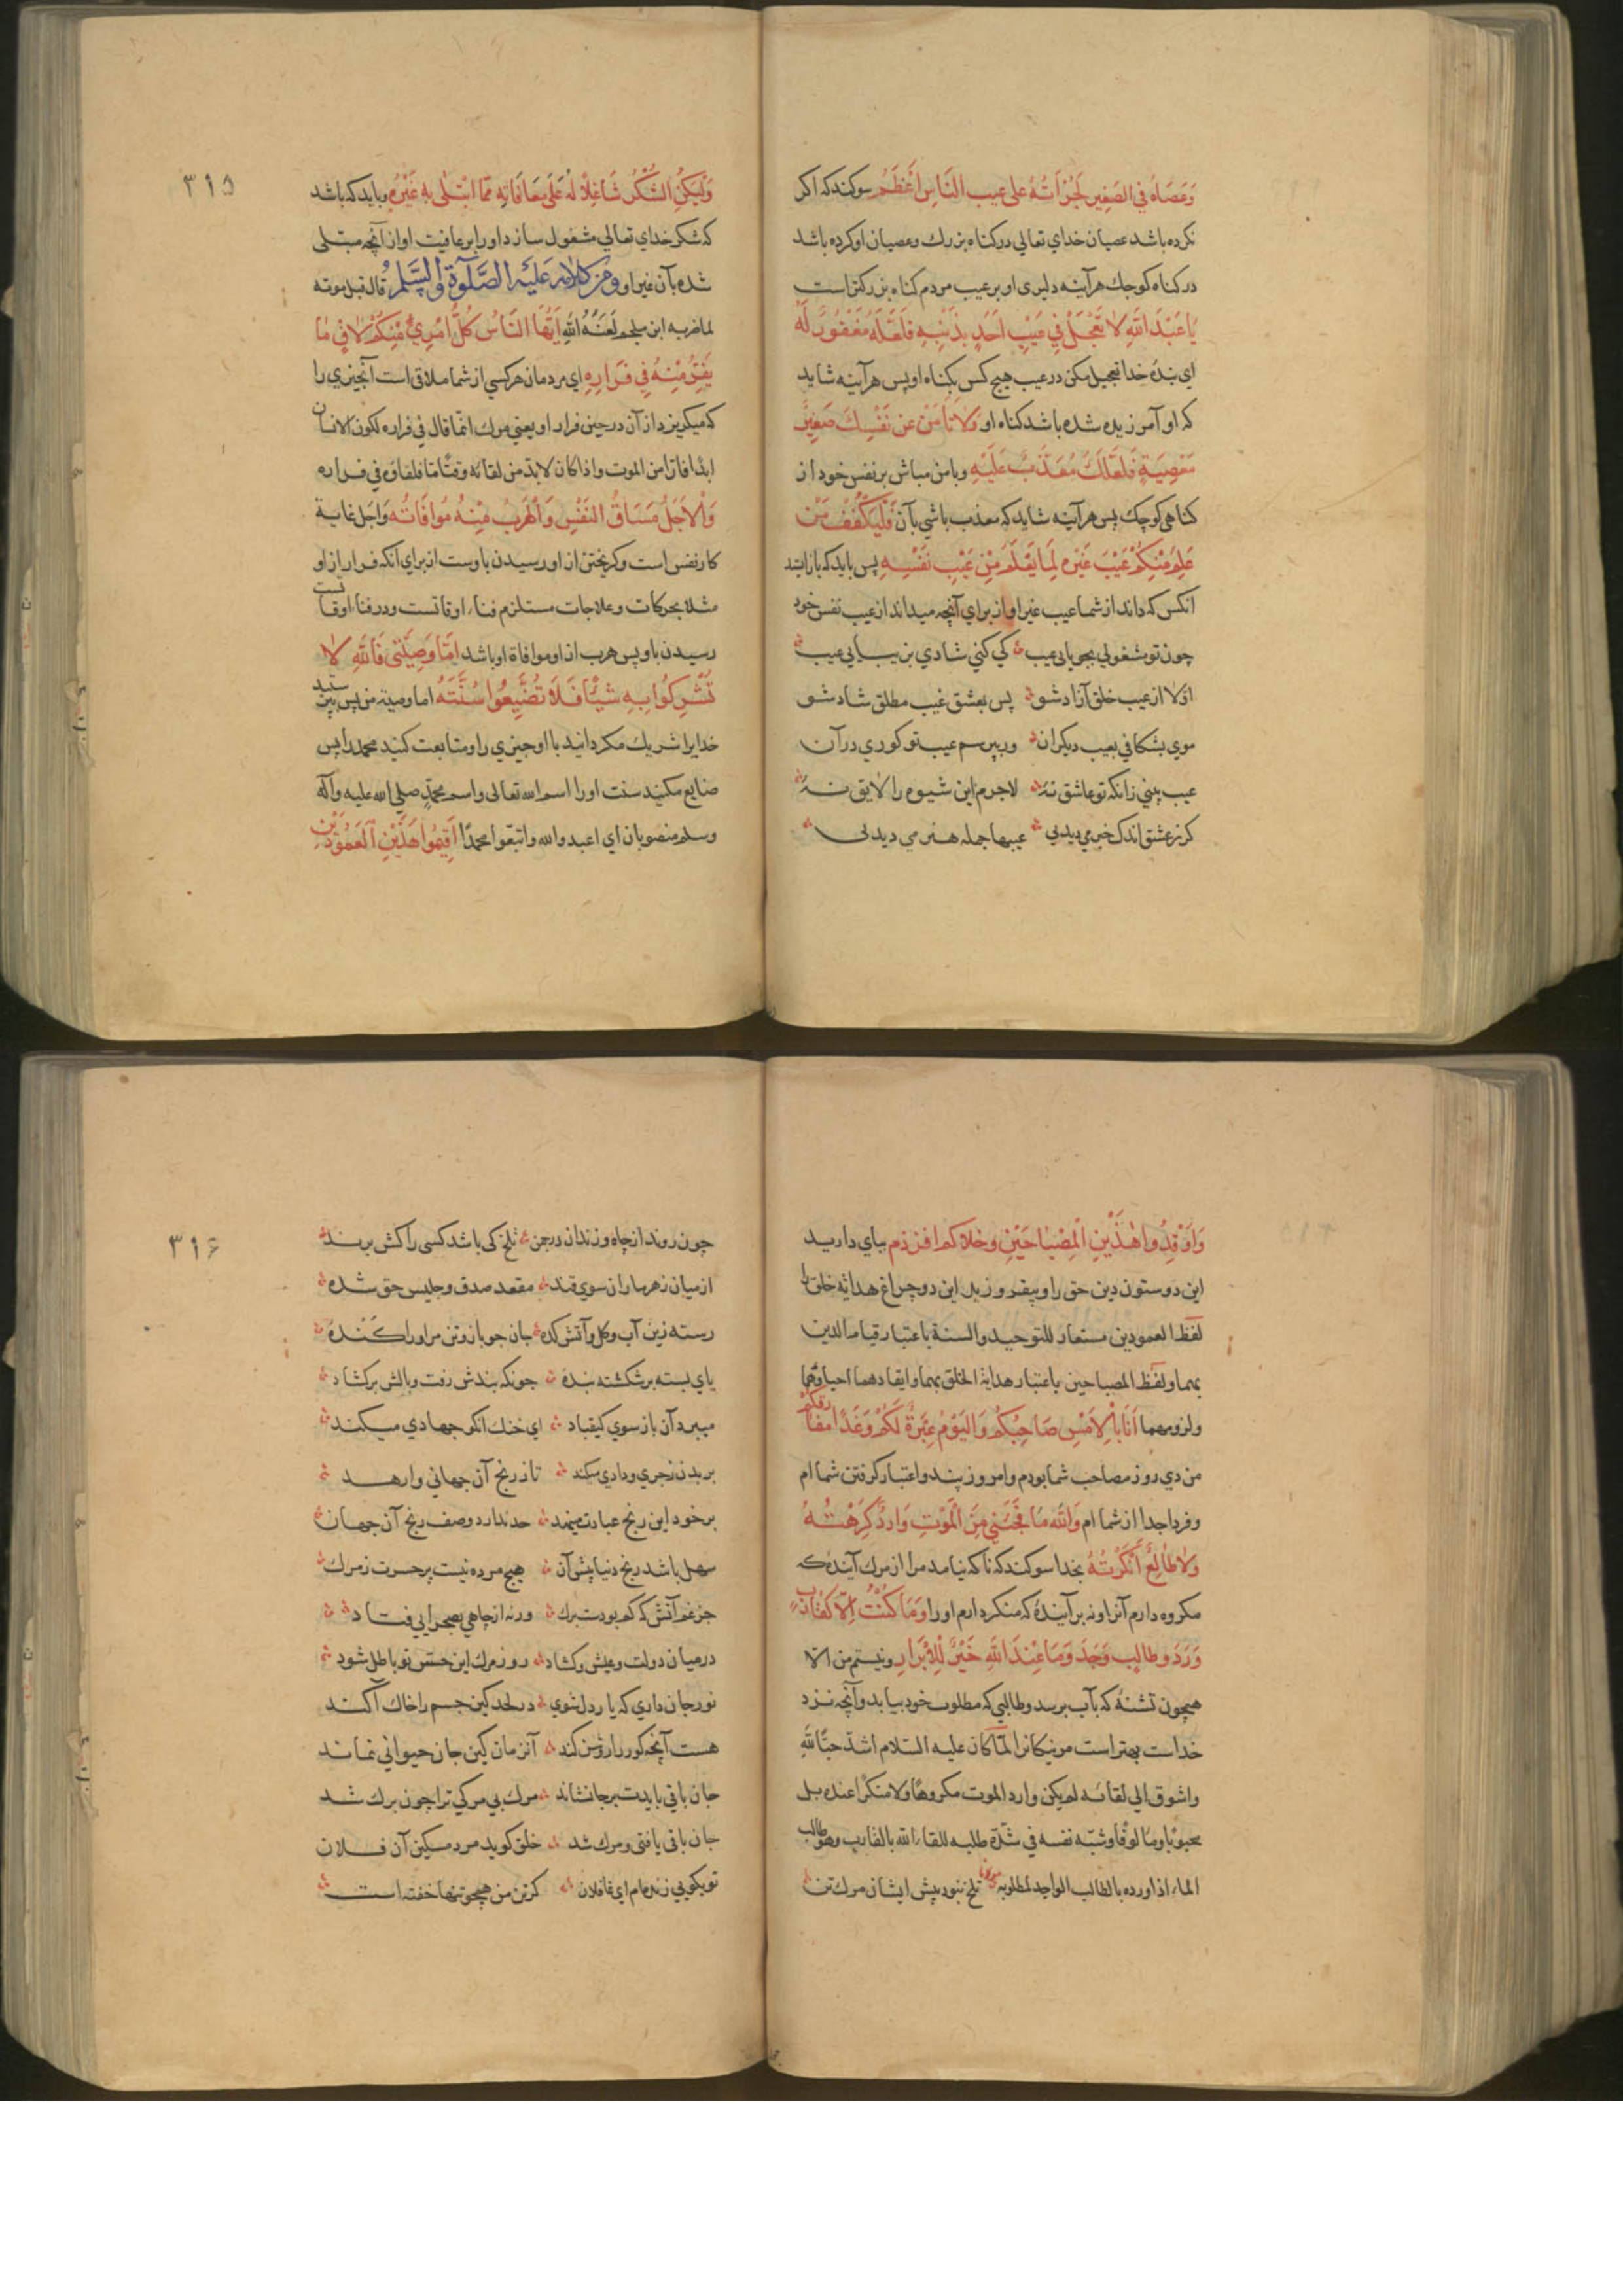 وَعَصَاهُ فِي الصَّغِيرِ لَجُرْاَتُهُ عَلى عيب النَّاسِ اَعْظَمُ سوكند كه اكر
نكرده باشد عصيان خداي تعالي در كناه بزرك وعصيان او كرده باشد
در كناه كوچك هر آينه دليرى او بر عيب مردم كناه بزركتر است
يَا عَبْدَ اللّهِ لاٰ تَعْجَلْ فِي عَيْبِ اَحَدٍ بِذَنْبِهِ فَلَعَلَّهُ مَغْفُورٌ لَهُ
اي بنده خدا تعجيل مكن در عيب هيچ كس بكناه او پس هر آينه شايد
كه او آمرزيده شده باشد كناه او وَلاَ تَأْمَنْ عَنْ نَفْسِكَ صَغِيرَ
مَعْصِيَةٍ فَلَعَلَّكَ مُعَذَّبٌ عَلَيْهِ وبا من مباش بر نفس خود از
كناهى كوچك پس هر آينه شايد كه معذب باشي بآن فَلْيَكْفُفْ مَنْ
عَلِمَ مِنْكُمْ عَيْبَ غَيْرِهِ لِمَا يَعْلَمُ مِنْ عَيْبِ نَفْسِهِ پس بايد كه باز ايستد
انكس كه داند از شما عيب غير او از براي آنچه ميداند از عيب نفس خود
چون تو مشغولي بجويايى عيب كي كني شادي بزيبايي عيب
اوّلا از عيب خلق آزاد شو پس بعشق غيب مطلق شاد شو
موي بشكافي بعيب ديكران ور بپرسم عيب تو كوري در آن
عيب بيني زانكه تو عاشق نهٔ لاجرم اين شيوه را لايق نهٔ
كر ز عشق اندك خبر مي ديدىى عيبها جمله هنر مي ديدىى
٣١۵
وَلْيَكُنِ الشُّكْرُ شَاغِلاً لَهُ عَلَى مُعَافَاتِهِ مِمَّا ابْتُلِىَ بِهِ غَيْرُهُ وبايد كه باشد
كه شكر خداي تعالي مشغول سازد او را بر عافيت او از آنچه مبتلى
شده بآن غير او ومن كلامه عَلَيْهِ الصَّلوٰةُ وَالسَّلٰمُ قال قبل موته
لما ضربه ابن ملجم لَعَنَهُ اللّٰهِ اَيُّهَا النَّاسُ كُلُّ امْرِئٍ مِنْكُمْ لاٰقٍ مٰا
يَفِرُّ مِنْهُ فِي فِرَارِهِ اي مردمان هر كسي از شما ملاقى است آنچيزي را
كه ميكريزد از آن در حين فرار او يعني مرك انّما قال في فراره لكون الانسان
ابدًا فارّا من الموت واذا كان لابد من لقائه وقتًا مّا فلقاؤه في فراره
وَالاَجَلُ مَسَاقُ النَّفْسِ وَالْهَرَبُ مِنْهُ مُوَافَاتُه واجل غاية
كار نفس است وكريختن از او رسيدن باوست از براي انكه فرار از او
مثلا بحركات وعلاجات مستلزم فناء اوقاتست ودر فناء اوقات
رسيدن باو پس هرب از او موافاة او باشد اَمَّا وَصِيَّتِى فَاللّٰهَ لاٰ
تُشْرِكُوا بِهِ شَيْئًا فَلاَ تُضَيِّعُوا سُنَّتَهُ اما وصية من پس
خدايرا شريك مكردانيد با او چيزي را ومتابعت كنيد محمد را پس
ضايع مكنيد سنت او را اسم الله تعالى واسم محمّدٍ صلى الله عليه وآله
وسلم منصوبان اي اعبدوا الله واتبعوا محمدًا اَقِيمُوا هٰذَيْنِ الْعَمُودَيْنِ
وَاَوْقِدُوا هٰذَيْنِ الْمِصْبَاحَيْنِ وخلاكم ذم بپاي داريد
اين دو ستون دين حق را وبيفروزيد اين دو چراغ هداية خلق را
لفظ العمودين مستعار للتوحيد والسنة باعتبار قيام الدين
بهما ولفظ المصباحين باعتبار هداية الخلق بهما وايقادهما احياؤهما
ولزومهما اَنَا بِالاَمْسِ صَاحِبُكُمْ وَالْيَوْمَ عِبْرَةٌ لَكُمْ وَغَدًا مفارقكم
من دي روز مصاحب شما بودم وامروز پند واعتبار كرفتن شما ام
وفردا جدا از شما ام وَاللّٰهِ مَا فَجَئَنِي مِنَ الْمَوْتِ وَارِدٌ كَرِهْتُهُ
وَلاٰ طٰالِعٌ اَنْكَرْتُهُ بخدا سوكند كه ناكه نيامد مرا از مرك آيندهٔ كه
مكروه دارم آنرا ونه برآيندهٔ كه منكر دارم او را وَمَا كُنْتُ اِلاَّ كَقَارِبٍ
وَرَدَ وطالِبٍ وَجَدَ وَمَا عِنْدَ اللّٰهِ خَيْرٌ لِلْاَبْرَارِ ونيستم من الا
همچون تشنهٔ كه بآب برسد وطالبي كه مطلوب خود بيابد وآنچه نزد
خداست بهتر است مر نيكانرا لمّا كان عليه السّلام اشدّ حبًّا للّهِ
واشوق الي لقائه لم يكن وارد الموت مكروهًا ولا منكرًا عنده بل
محبوبًا ومألوفًا وشبّه نفسه في شدّة طلبه للقاء الله بالقارب وهو طالب
الماء اذا ورده بالطالب الواجد لمطلوبه مولانا تلخ نبود پيش ايشان مرك تن
٣١۶
چون روند از چاه وزندان در چمن تلخ كى باشد كسى را كش برند
از ميان زهر ماران سوي قند مقعد صدق وجليس حق شده
رسته زين آب وكل وآتش كده جان جو باز وتن مر او را كُنْدهٔ
پاي بسته پر شكسته بندهٔ چونكه بندش رفت وبالش بركشاد
ميبرد آن باز سوي كيقباد اي خنك انكو جهادي ميكند
بر بدن زجري ودادي ميكند تا ز رنج آن جهاني وارهد
بر خود اين رنج عبادت مينهد حد ندارد وصف رنج آن جهان
سهل باشد رنج دنيا پيش آن هيچ مرده نيست پر حسرت ز مرك
جز غم آتش كه كم بودست برك ورنه از چاهي بصحرايي فتاد
در ميان دولت وعيش وكشاد روز مرك اين حسّ تو باطل شود
نور جان داري كه يار دل شوي در لحد كين جسم را خاك آكند
هست آنچه كور را روشن كند آنزمان كين جان حيواني نماند
جان باقى بايدت بر جا نشاند مرك بي مركي ترا چون برك شد
جان باقى يافتى ومرك شد خلق كويد مرد مسكين آن فلان
تو بكويي زنده ام اي غافلان كر تن من همچو تنها خفته است